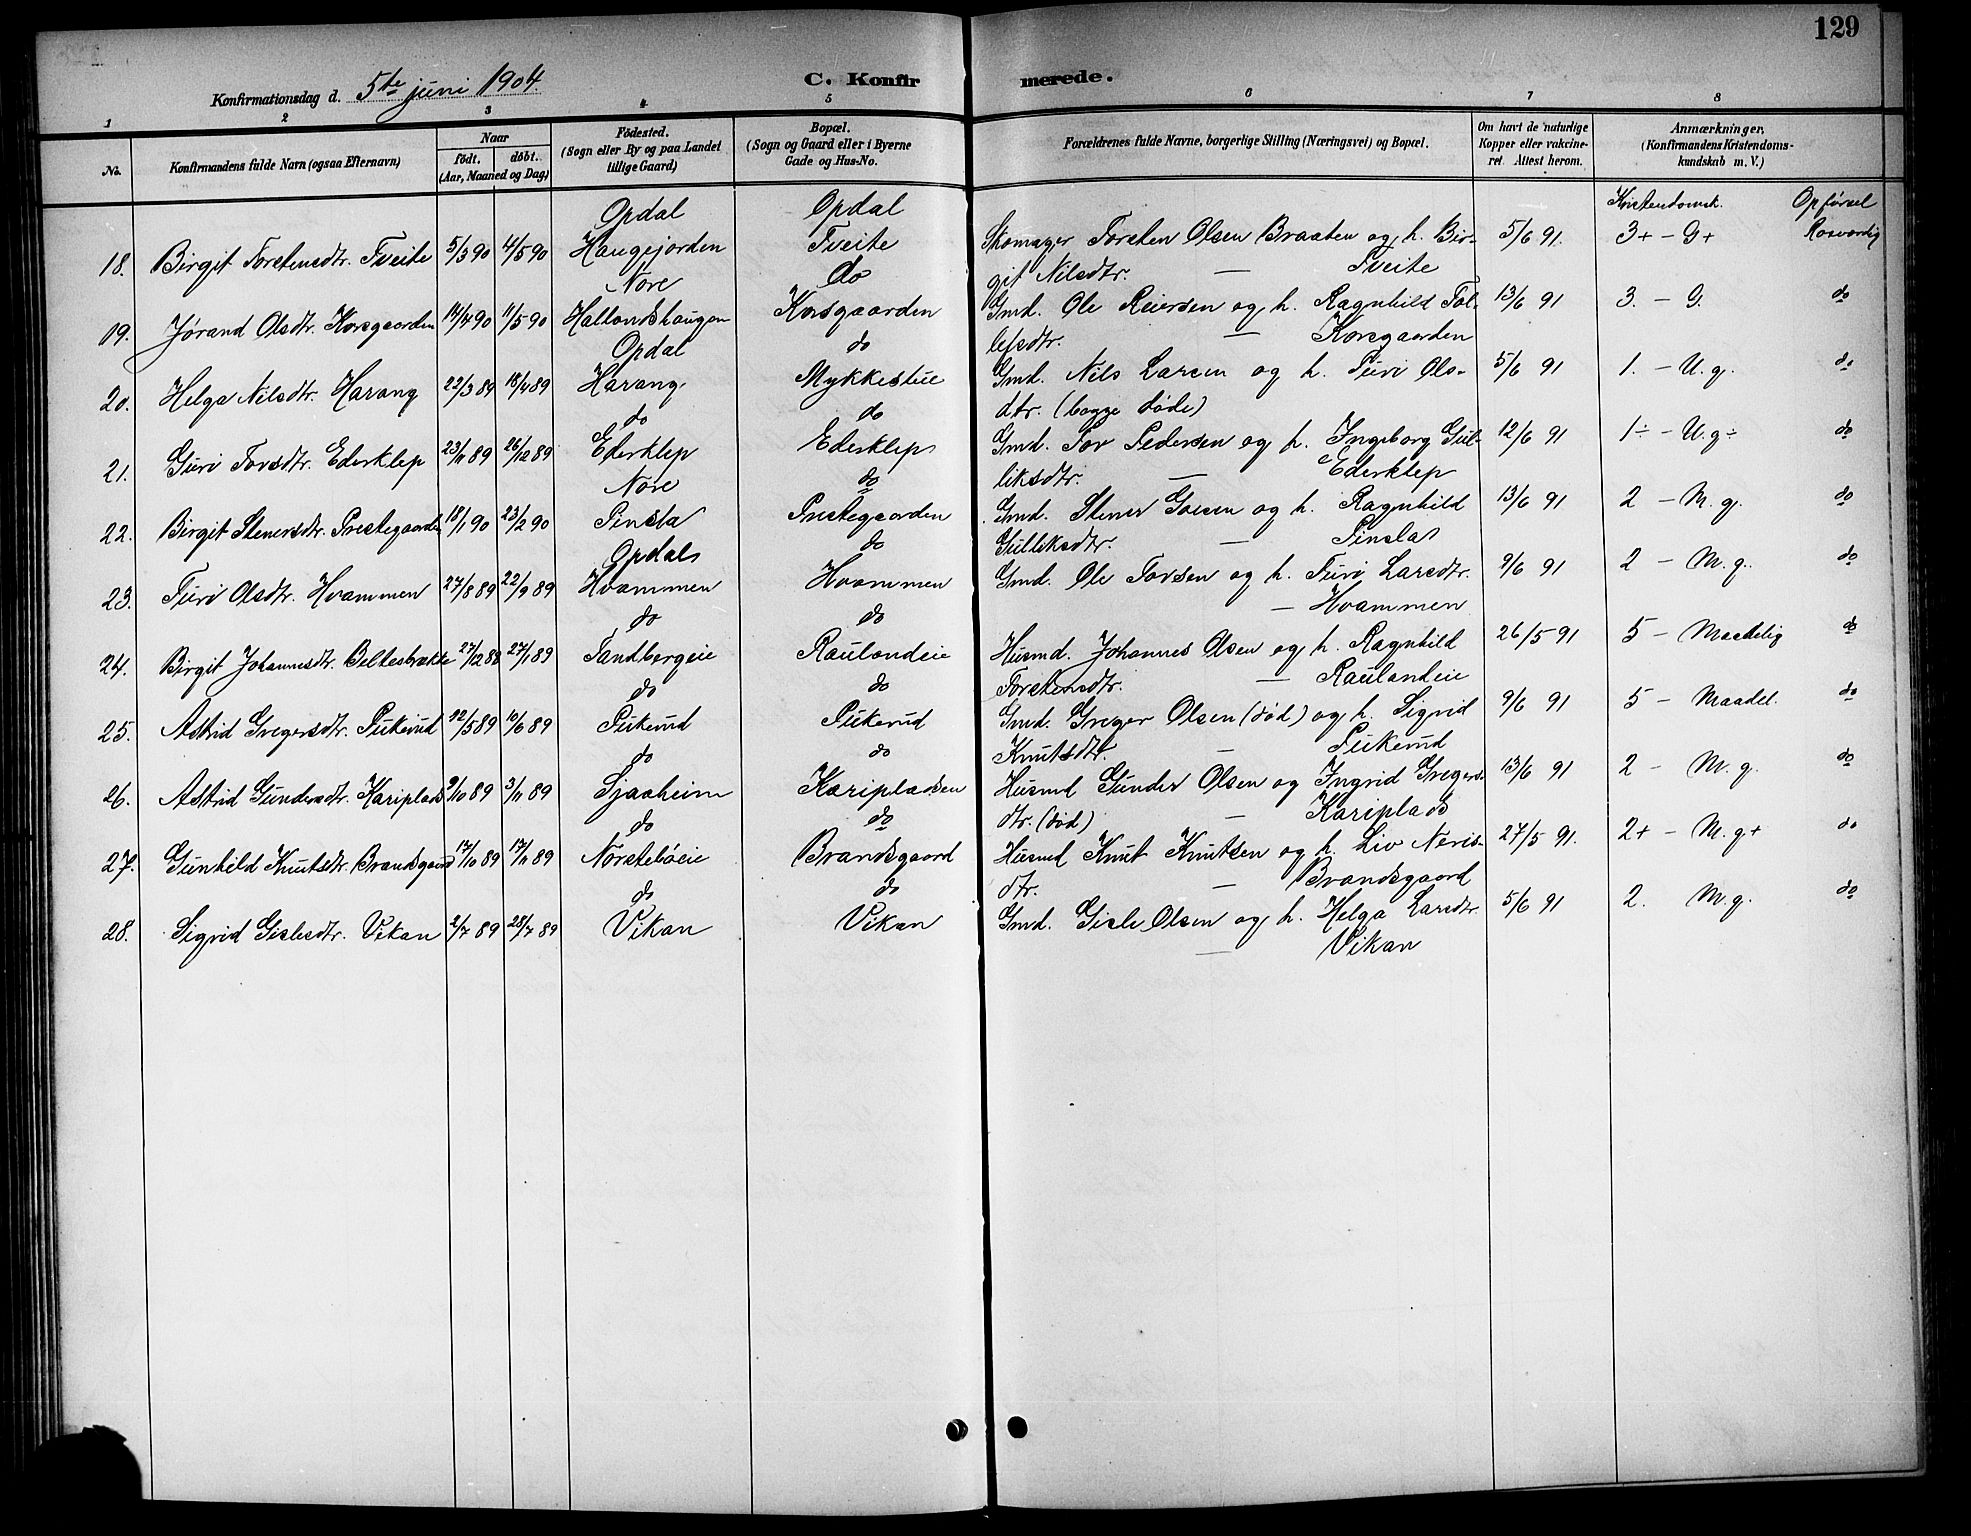 129
C. Konfirmerede.
Konfirmationsdag d. 5te juni 1904.
1 2 3 4 5 6 7 8
No.
Konfirmandens fulde Navn (ogsaa Efternavn)
Naar
födt. döbt.
(Aar, Maaned og Dag)
Födested.
(Sogn eller By og paa Landet
tillige Gaard)
Bopæl.
(Sogn og Gaard eller i Byerne
Gade og Hus-No.
Forældrenes fulde Navne, borgerlige Stilling (Næringsvei) og Bopæl.
Om havt de naturlige
Kopper eller vakcine-
ret. Attest herom.
Anmærkninger.
(Konfirmandens Kristendoms-
kundskab m. V.)
Kristendomsk. Opförsel
Opdal Opdal
18. Birgit Torstensdtr. Tveite 5/3 90 4/5 90 Haugejorden Tveite Skomager Torsten Olsen Braaten og h. Bir- 5/6 91. 3+ - G+ Rosværdig
git Nilsdtr. — Tveite
Nore do
19. Jørand Olsdtr. Korsgaarden 14/4 90 11/5 90 Hallandshaugen Korsgaarden Gmd. Ole Reiersen og h. Ragnhild Tol- 13/6 91 3. - G. do
lefsdtr. — Korsgaarden
Opdal do
20. Helga Nilsdtr. Harang 22/3 89 18/4 89 Harang. Mykkestue Gmd. Nils Larsen og h. Turi Ols- 5/6 91 1. - U.g. do
dtr. (begge døde)
do do
21. Guri Torsdtr. Ederklep 23/11 89 26/12 89 Ederklep Ederklep Gmd. Tor Pedersen og h. Ingeborg Gul- 12/6 91 1÷ - U.g÷ do
liksdtr. — Ederklep
Nore do
22. Birgit Stenersdtr. Prestegaarden 18/1 90 23/2 90 Sinsla Prestegaarden Gmd. Stener Goesen og h. Ragnhild 13/6 91 2 - M.g. do
Gulliksdtr. — Sinsla
Opdal do
23. Turi Olsdtr. Hvammen 27/8 89 22/9 89 Hvammen Hvammen Gmd. Ole Torsen og h. Turi Larsdtr. 9/6 91 2 - M.g. do
— Hvammen
do do
24. Birgit Johannesdtr. Beltesbrække 27/12 88 27/1 89 Sandbergeie Raulandeie Husmd. Johannes Olsen og h. Ragnhild 26/5 91 5 - Maadelig do
Torstensdtr. — Raulandeie
do do
25. Astrid Gregersdtr. Pukerud 12/5 89 10/6 89 Pukerud Pukerud Gmd. Greger Olsen (død) og h. Sigrid 9/6 91 5 - Maadel. do
Knutsdtr. — Pukerud
do do
26. Astrid Gundersdtr. Kariplads 9/10 89 3/11 89 Sjaaheim Karipladsen Husmd Gunder Olsen og Ingrid Gregers- 13/6 91 2 - M.g. do
dtr. (død) — Kariplads
do do
27. Gunhild Knutsdtr. Brandsgaard 17/10 89 17/11 89 Norstebøeie Brandsgaard Husmd Knut Knutsen og h. Liv Neris- 27/5 91. 2+ - M.g+ do
dtr. — Brandsgaard
do do
28. Sigrid Gislesdtr. Vikan 2/7 89 28/7 89 Vikan Vikan Gmd. Gisle Olsen og h. Helga Larsdtr. 5/6 91 2. M.g. do
— Vikan